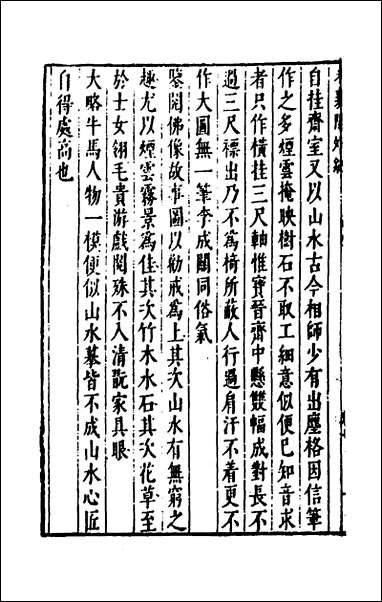 自挂齋室又以山水古今相師少有出塵格因信筆
作之多煙雲掩映樹石不取工細意似便已知音求
者只作横挂三尺軸惟寶晉齋中懸雙幅成對長不
過三尺褾出乃不為椅所蔽人行過肩汗不着更不
作大圖無一筆李成關同俗氣
鑒閱佛像故事圖以勸戒為上其次山水有無窮之
趣尤以煙雲霧景為佳其次竹木水石其次花草至
於士女翎毛貴游戲閱殊不入清翫家具眼
大略牛馬人物一模便似山水摹皆不成山水心匠
自得處高也